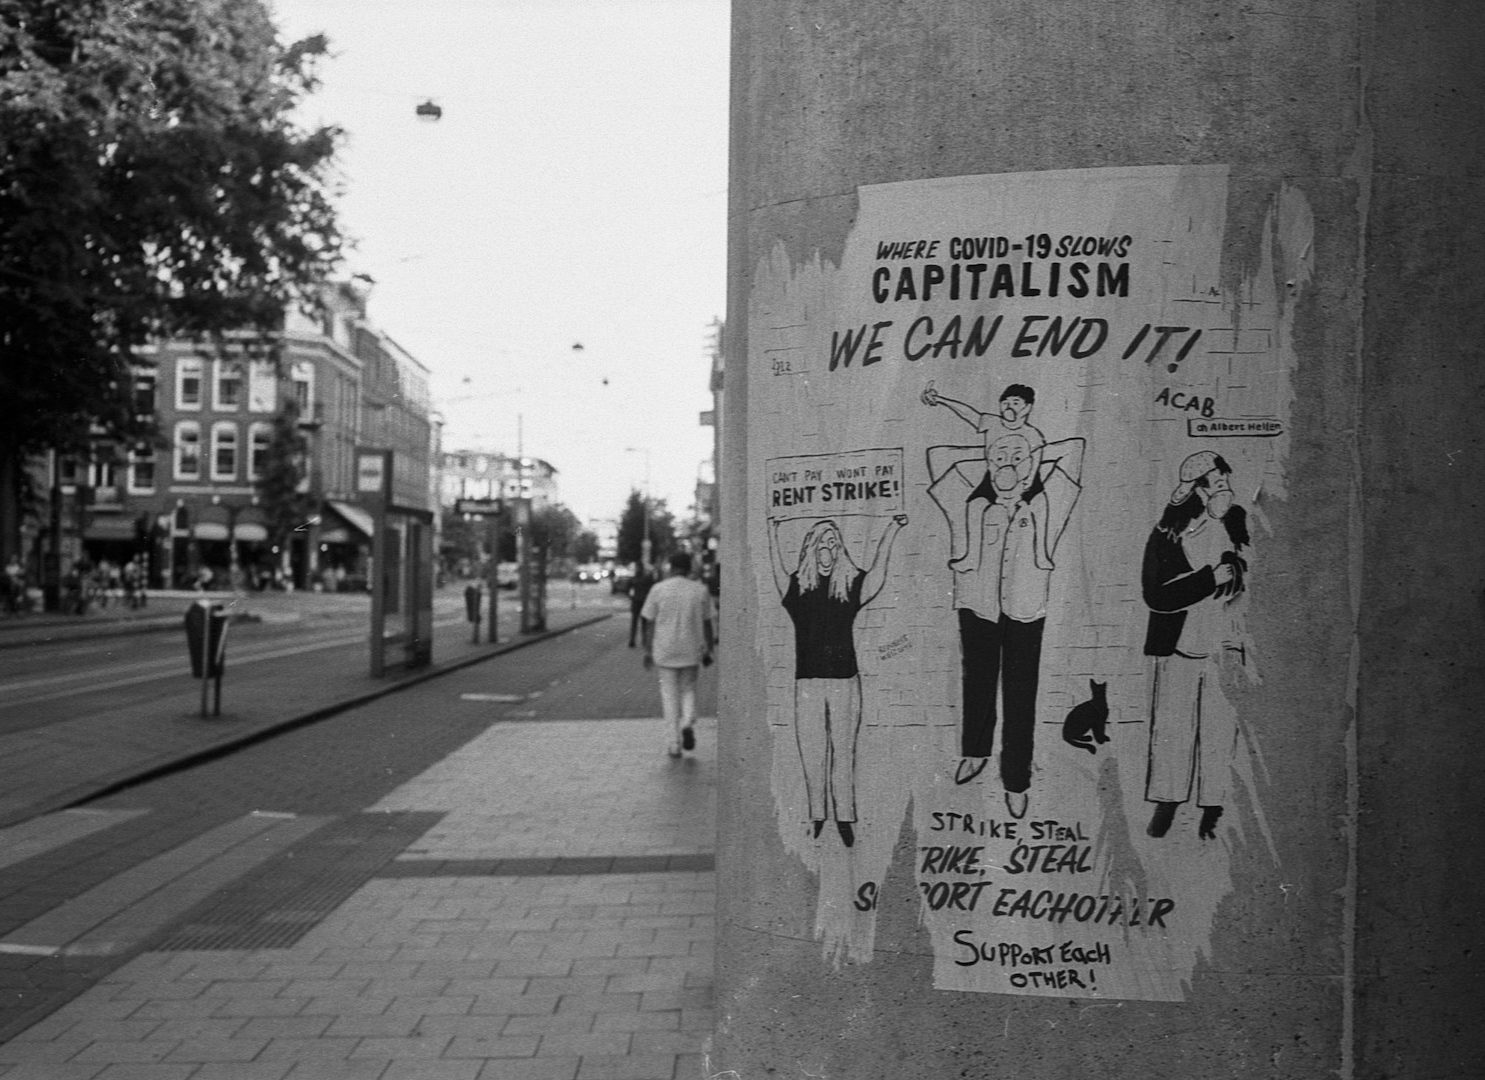 WHERE COVID-19 SLOWS
CAPITALISM
WE CAN END IT!
ACAB
oh Albert Heijn
CAN'T PAY WONT PAY
RENT STRIKE!
STRIKE, STEAL
RIKE, STEAL
S PORT EACHOTHER
SUPPORT EACH
OTHER!